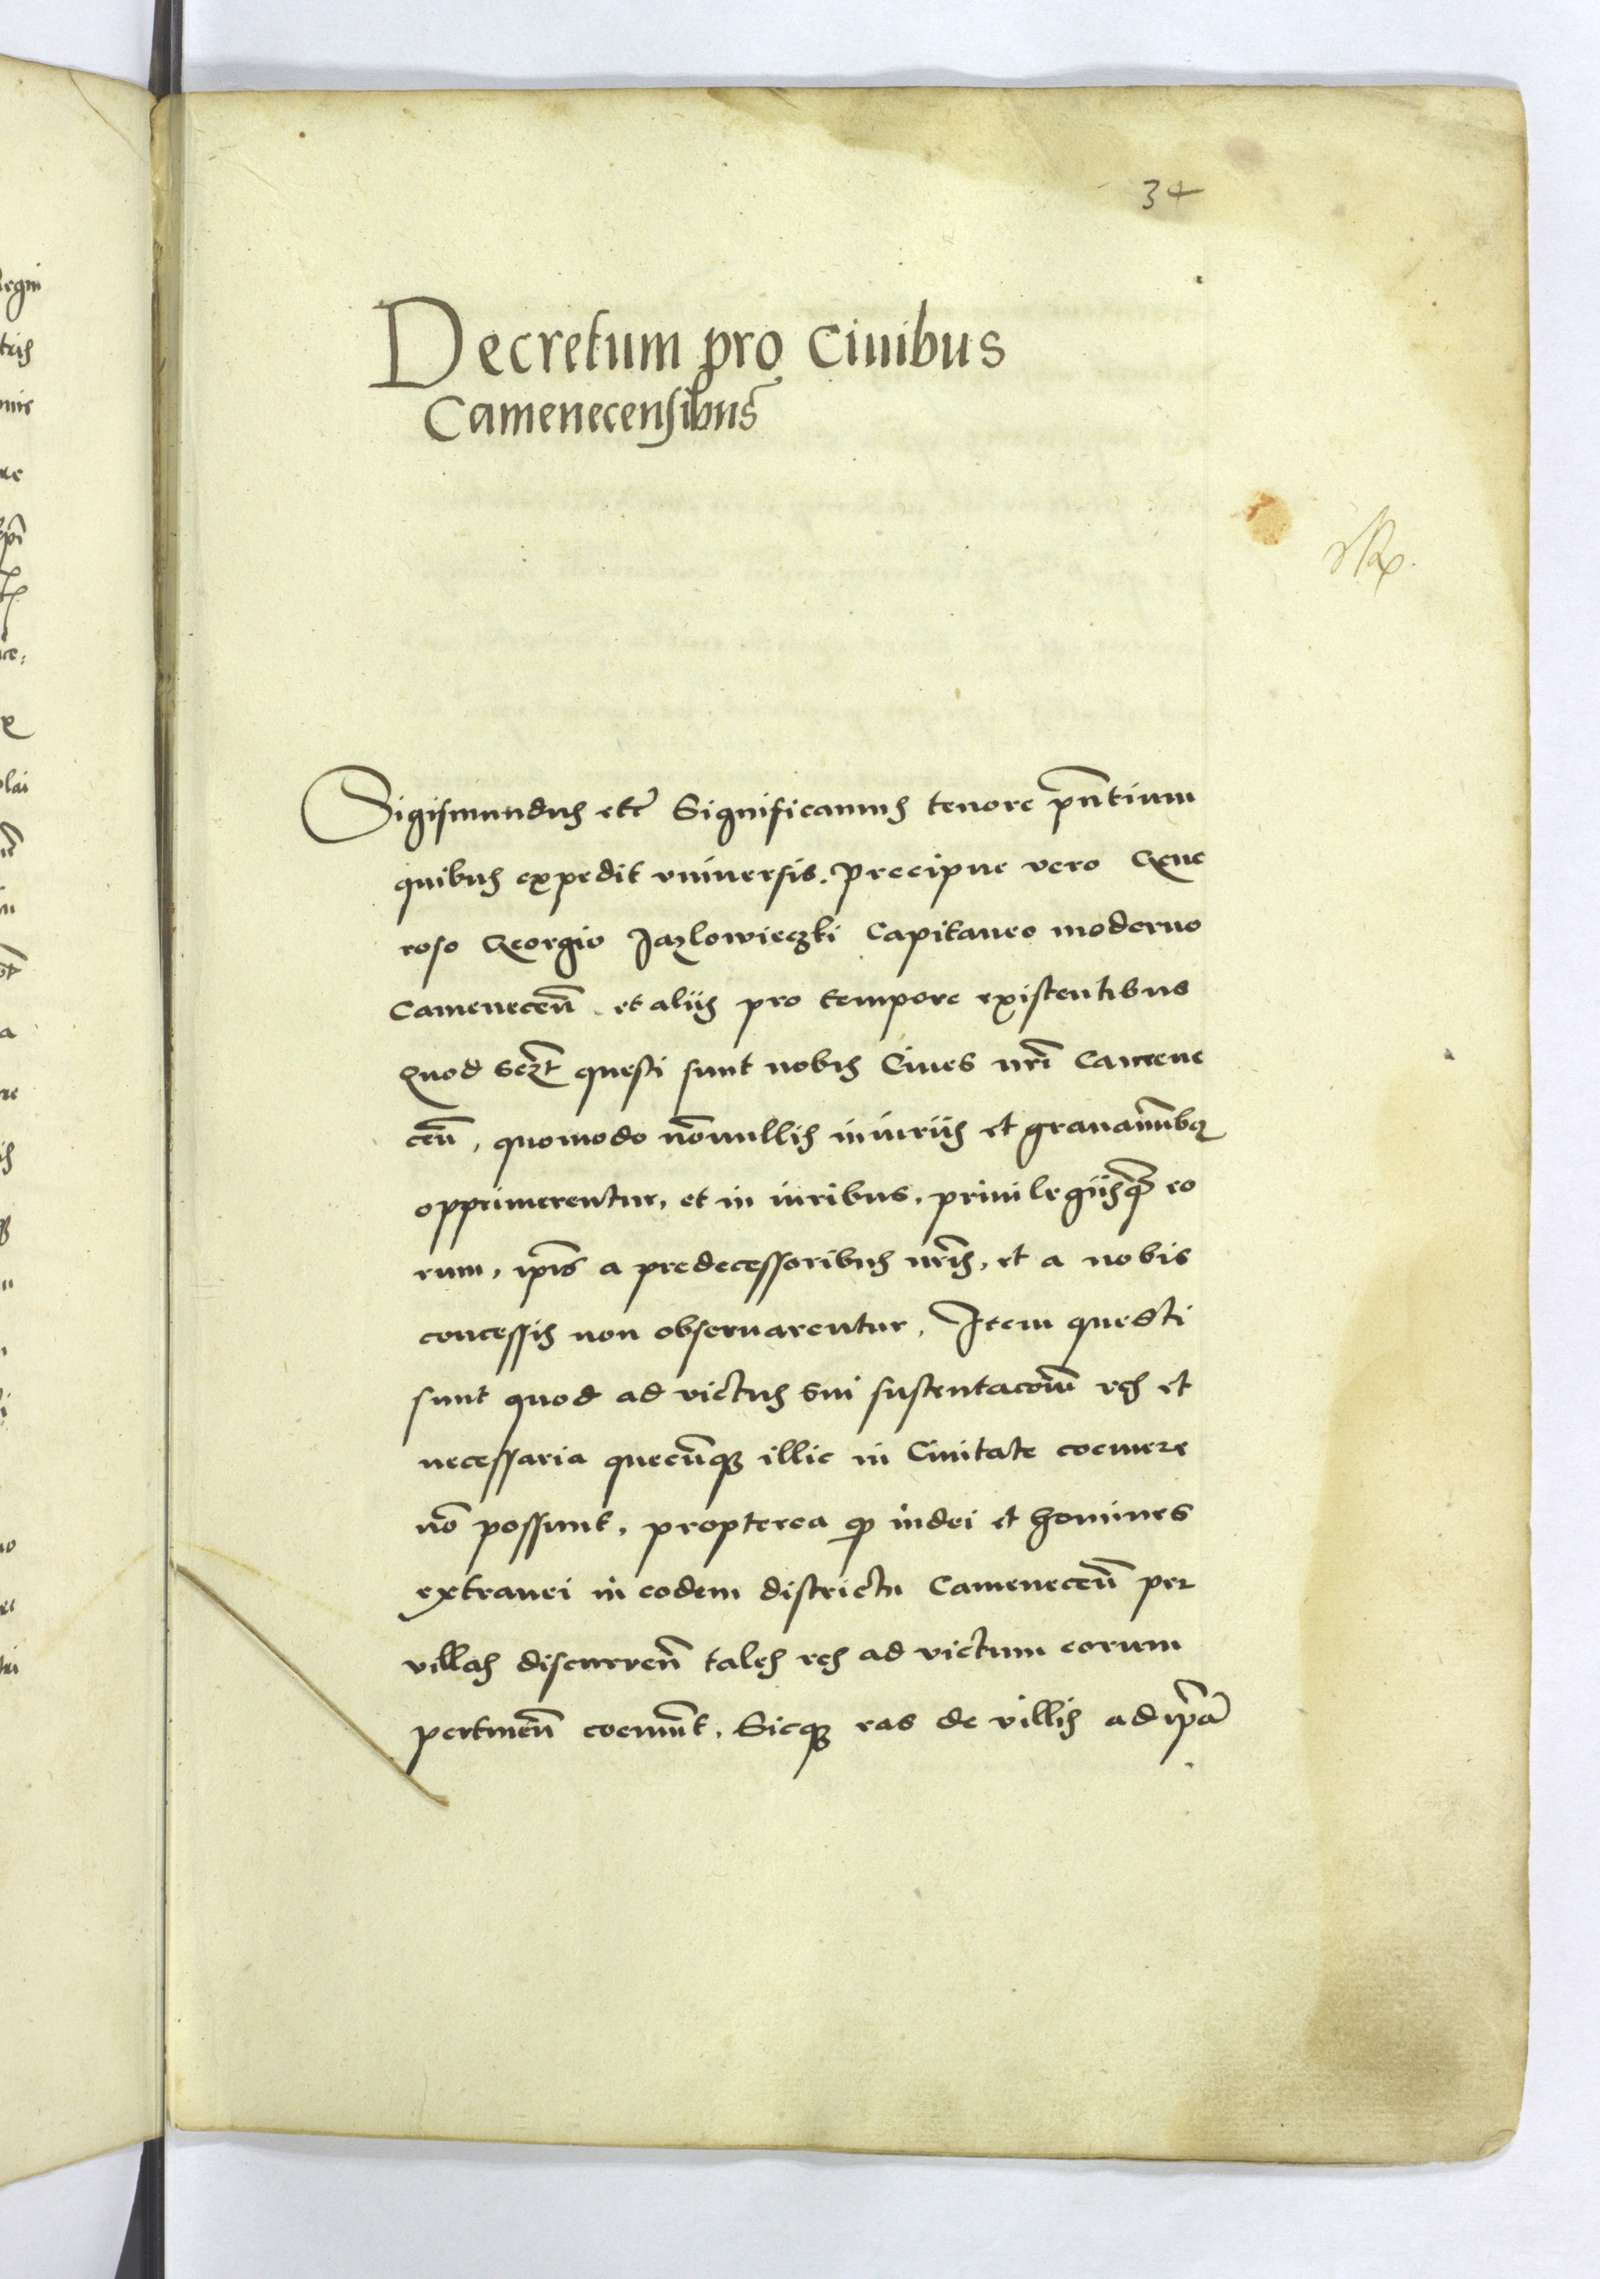 34
Decretum pro Ciuibus
Camenecensibus
Sigismundus etc̃ Significamus tenore pñtium
quibus expedit vniuersis. Precipue vero Gene
roso Georgio Jazlowieczki Capitaneo moderno
Cameneceñ. et aliis pro tempore existentibus
Quod questi sunt nobis Ciues nr̃i Camene
ceñ, quomodo nõnullis iniuriis et grauamĩbꝫ
opprimerentur, et in iuribus, priuilegiisqꝫ eo
rum, ip̃is a predecessoribus nr̃is, et a nobis
concessis non obseruarentur. Item questi
sunt quod ad victus sui sustentacõem res et
necessaria quecũqꝫ illic in Ciuitate coemere
nõ possunt, propterea qꝫ iudei et homines
extranei in eodem districtu Cameneceñ per
villas discurreñ tales res ad victum eorum
pertineñ coemũt. Sicqꝫ eas de villis ad ip̃ã